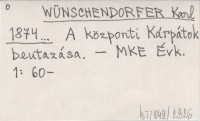 0
WÜNSCHENDORFER Karl
1874... A központi Kárpátok
beutazása. — MKE Évk.
1: 60—